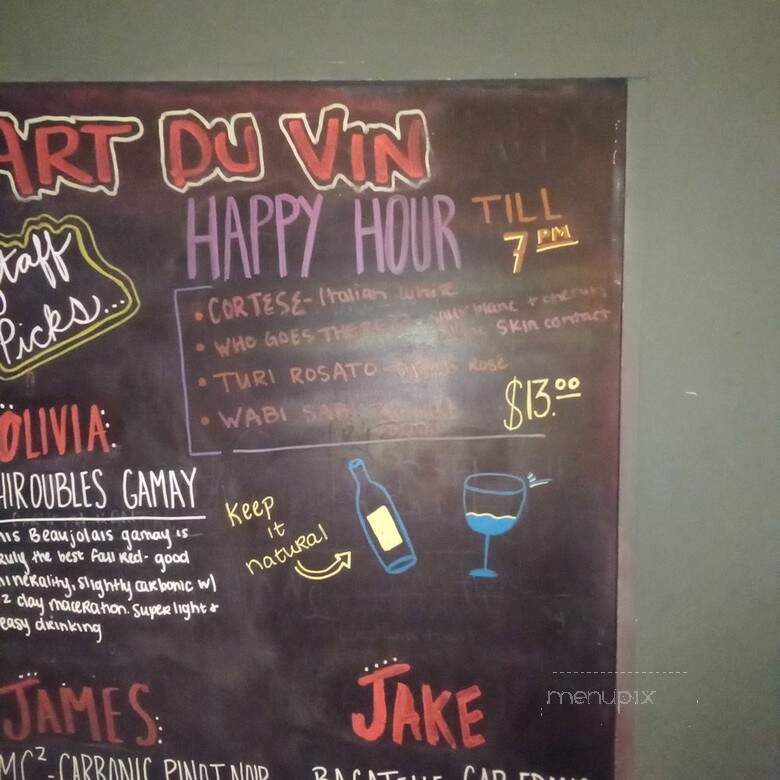 ART DU VIN
HAPPY HOUR TILL 7PM
Staff
Picks...
• CORTESE - Italian white
• WHO GOES THERE
skin contact
• TURI ROSATO - rosé
• WABI
$13.00
OLIVIA:
HIROUBLES GAMAY
his Beaujolais gamay is
ruly the best fall red - good
minerality, slightly carbonic w/
2 day maceration. Super light +
easy drinking
Keep
it
natural
JAMES:
JAKE
MC² - CARBONIC PINOT NOIR
BAGATELLE CAB FRANC
menupix